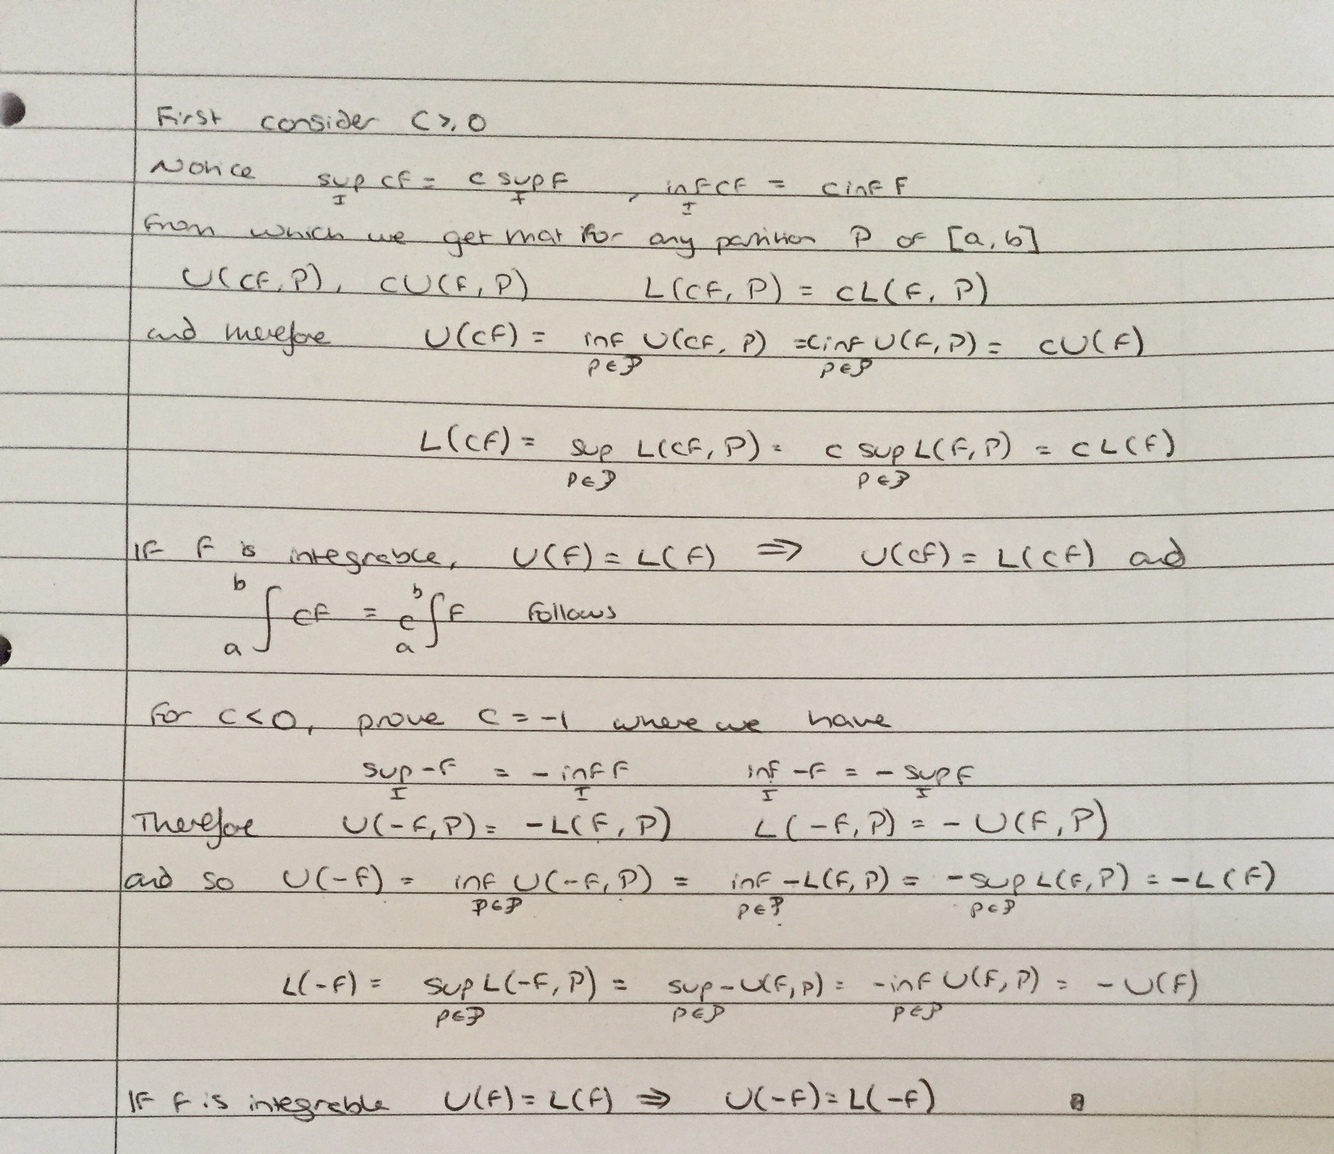 First consider C ⩾ 0
Notice sup_I cf = c sup_I f , inf_I cf = c inf f
from which we get that for any partition P of [a, b]
U(cf, P), cU(f, P) L(cf, P) = cL(f, P)
and therefore U(cf) = inf_{P∈𝒫} U(cf, P) = c inf_{P∈𝒫} U(f, P) = cU(f)
L(cf) = sup_{P∈𝒫} L(cf, P) = c sup_{P∈𝒫} L(f, P) = cL(f)
If f is integrable, U(f) = L(f) ⇒ U(cf) = L(cf) and
∫_a^b cf = c ∫_a^b f follows
For C<0, prove C = -1 where we have
sup_I -f = - inf_I f inf_I -f = - sup_I f
Therefore U(-f, P) = -L(f, P) L(-f, P) = - U(f, P)
and so U(-f) = inf_{P∈𝒫} U(-f, P) = inf_{P∈𝒫} -L(f, P) = -sup_{P∈𝒫} L(f, P) = -L(f)
L(-f) = sup_{P∈𝒫} L(-f, P) = sup_{P∈𝒫} -U(f, P) = -inf_{P∈𝒫} U(f, P) = - U(f)
If f is integrable U(f) = L(f) ⇒ U(-f) = L(-f)